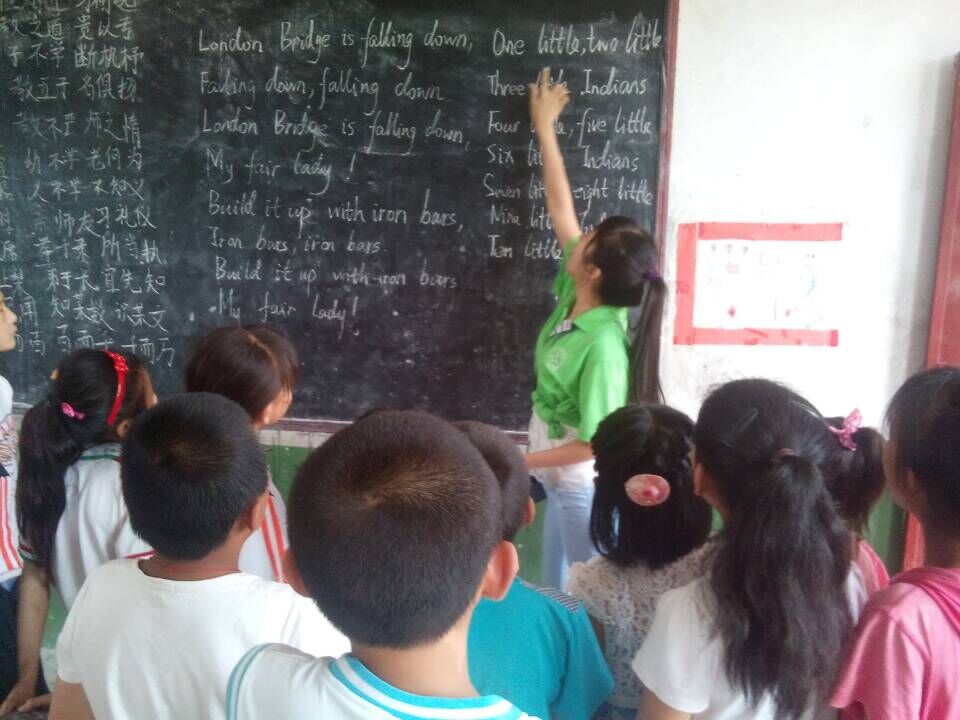 习相远
教之道 贵以专
子不学 断机杼
教五子 名俱扬
教不严 师之惰
幼不学 老何为
人不学 不知义
亲师友 习礼仪
所当执
宜先知
知某数 识某文
London Bridge is falling down,
Falling down, falling down.
London Bridge is falling down,
My fair lady!
Build it up with iron bars,
Iron bars, iron bars
Build it up with iron bars
My fair lady!
One little, two little
Three little Indians
Four little, five little
Six little Indians
Seven eight little
Nine
Ten little